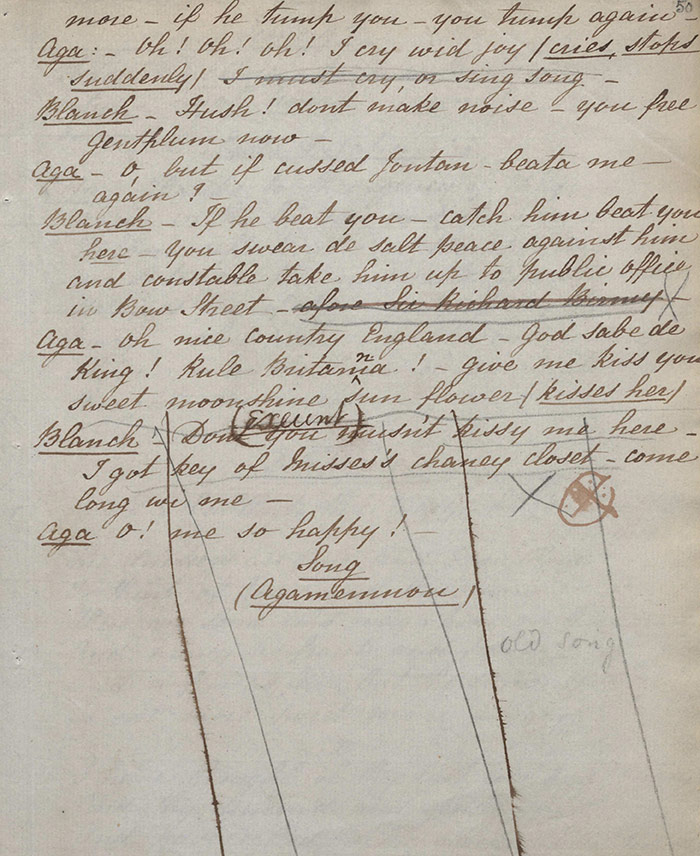 50
more – if he tump you – you tump again
Aga: – Oh! Oh! Oh! I cry wid joy (cries, stops
suddenly) I must cry, or sing song –
Blanch – Hush! dont make noise – you free
Genthlum now –
Aga – O, but if cussed Jontan – beata me –
again? –
Blanch – If he beat you – catch him beat you
here – you swear de salt peace against him
and constable take him up to public office
in Bow Street – afore Sir Richard Birney –
Aga – oh nice country England – God sabe de
King! Rule Britannia! – give me kiss you
sweet moonshine sun flower (kisses her)
(Exeunt)
Blanch – Dont you musn't kissy me here –
I got key of Misses's chaney closet – come
long wi me –
Aga O! me so happy! –
Song
(Agamemnon)
old song